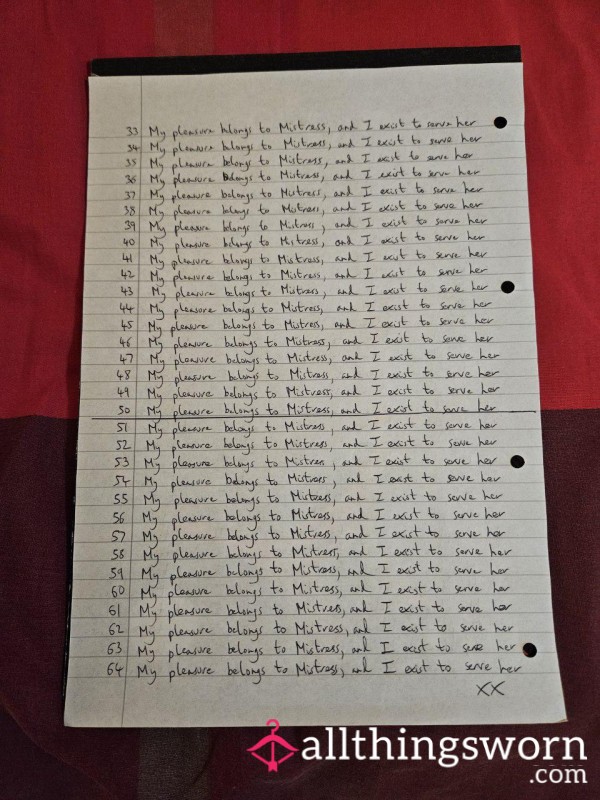 33 My pleasure belongs to Mistress, and I exist to serve her
34 My pleasure belongs to Mistress, and I exist to serve her
35 My pleasure belongs to Mistress, and I exist to serve her
36 My pleasure belongs to Mistress, and I exist to serve her
37 My pleasure belongs to Mistress, and I exist to serve her
38 My pleasure belongs to Mistress, and I exist to serve her
39 My pleasure belongs to Mistress, and I exist to serve her
40 My pleasure belongs to Mistress, and I exist to serve her
41 My pleasure belongs to Mistress, and I exist to serve her
42 My pleasure belongs to Mistress, and I exist to serve her
43 My pleasure belongs to Mistress, and I exist to serve her
44 My pleasure belongs to Mistress, and I exist to serve her
45 My pleasure belongs to Mistress, and I exist to serve her
46 My pleasure belongs to Mistress, and I exist to serve her
47 My pleasure belongs to Mistress, and I exist to serve her
48 My pleasure belongs to Mistress, and I exist to serve her
49 My pleasure belongs to Mistress, and I exist to serve her
50 My pleasure belongs to Mistress, and I exist to serve her
51 My pleasure belongs to Mistress, and I exist to serve her
52 My pleasure belongs to Mistress, and I exist to serve her
53 My pleasure belongs to Mistress, and I exist to serve her
54 My pleasure belongs to Mistress, and I exist to serve her
55 My pleasure belongs to Mistress, and I exist to serve her
56 My pleasure belongs to Mistress, and I exist to serve her
57 My pleasure belongs to Mistress, and I exist to serve her
58 My pleasure belongs to Mistress, and I exist to serve her
59 My pleasure belongs to Mistress, and I exist to serve her
60 My pleasure belongs to Mistress, and I exist to serve her
61 My pleasure belongs to Mistress, and I exist to serve her
62 My pleasure belongs to Mistress, and I exist to serve her
63 My pleasure belongs to Mistress, and I exist to serve her
64 My pleasure belongs to Mistress, and I exist to serve her
XX
allthingsworn
.com